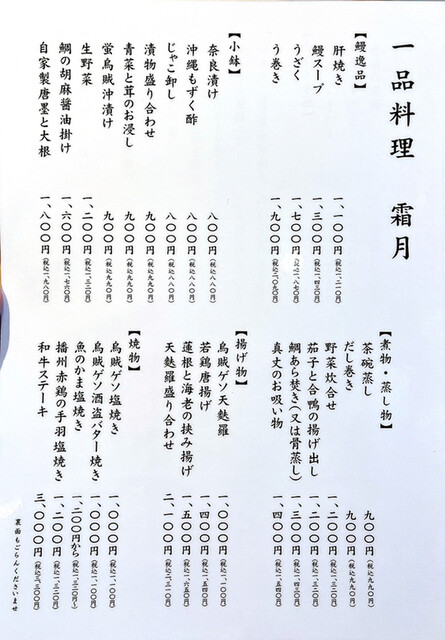 一品料理　霜月
【鰻逸品】
肝焼き　一、一〇〇円（税込一、二一〇）
鰻スープ　一、三〇〇円（税込一、四三〇）
うざく　一、七〇〇円（税込一、八七〇）
う巻き　一、九〇〇円（税込二、〇九〇）
【小鉢】
奈良漬け　八〇〇円（税込八八〇）
沖縄もずく酢　八〇〇円（税込八八〇）
じゃこ卸し　八〇〇円（税込八八〇）
漬物盛り合わせ　九〇〇円（税込九九〇）
青菜と茸のお浸し　九〇〇円（税込九九〇）
螢烏賊沖漬け　九〇〇円（税込九九〇）
生野菜　一、二〇〇円（税込一、三二〇）
鯛の胡麻醤油掛け　一、六〇〇円（税込一、七六〇）
自家製唐墨と大根　一、八〇〇円（税込一、九八〇）
【煮物・蒸し物】
茶碗蒸し　九〇〇円（税込九九〇）
だし巻き　九〇〇円（税込九九〇）
野菜炊合せ　一、二〇〇円（税込一、三二〇）
茄子と合鴨の揚げ出し　一、二〇〇円（税込一、三二〇）
鯛あら焚き（又は骨蒸し）　一、三〇〇円（税込一、四三〇）
真丈のお吸い物　一、四〇〇円（税込一、五四〇）
【揚げ物】
烏賊ゲソ天麩羅　一、〇〇〇円（税込一、一〇〇）
若鶏唐揚げ　一、四〇〇円（税込一、五四〇）
蓮根と海老の挟み揚げ　一、五〇〇円（税込一、六五〇）
天麩羅盛り合わせ　二、一〇〇円（税込二、三一〇）
【焼物】
烏賊ゲソ塩焼き　一、〇〇〇円（税込一、一〇〇）
烏賊ゲソ酒盗バター焼き　一、〇〇〇円（税込一、一〇〇）
魚のかま塩焼き　一、二〇〇円から（税込一、三二〇〜）
播州赤鶏の手羽塩焼き　一、二〇〇円（税込一、三二〇）
和牛ステーキ　三、〇〇〇円（税込三、三〇〇）
裏面もごらんくださいませ